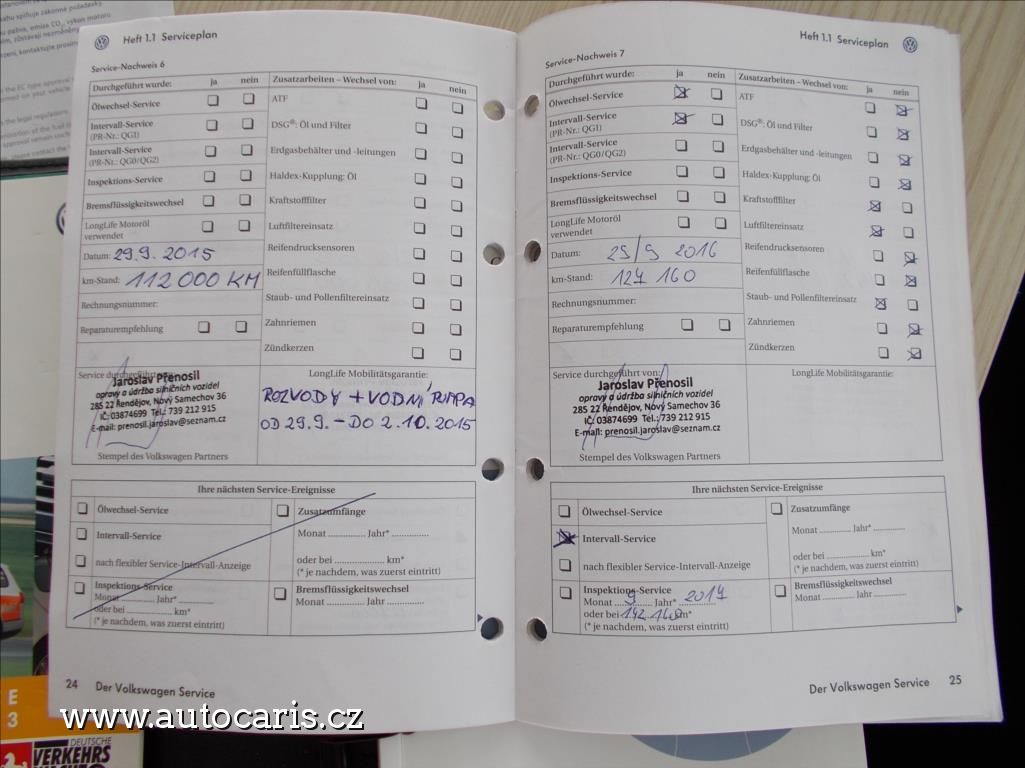 Heft 1.1 Serviceplan
Service-Nachweis 6
Durchgeführt wurde: ja nein
Zusatzarbeiten – Wechsel von: ja nein
Ölwechsel-Service
ATF
Intervall-Service
(PR-Nr.: QG1)
DSG®: Öl und Filter
Intervall-Service
(PR-Nr.: QG0/QG2)
Erdgasbehälter und -leitungen
Inspektions-Service
Haldex-Kupplung: Öl
Bremsflüssigkeitswechsel
Kraftstofffilter
LongLife Motoröl
verwendet
Luftfiltereinsatz
Datum: 29.9. 2015
Reifendrucksensoren
km-Stand: 112 000 KM
Reifenfüllflasche
Rechnungsnummer:
Staub- und Pollenfiltereinsatz
Reparaturempfehlung
Zahnriemen
Zündkerzen
Service durchgeführt von:
LongLife Mobilitätsgarantie:
Jaroslav Přenosil
opravy a údržba silničních vozidel
285 22 Řendějov, Nový Samechov 36
IČ: 03874699 Tel.: 739 212 915
E-mail: prenosil.jaroslav@seznam.cz
ROZVODY + VODNÍ
OD 29.9. – DO 2.10.2015
Stempel des Volkswagen Partners
Ihre nächsten Service-Ereignisse
Ölwechsel-Service
Zusatzumfänge
Intervall-Service
Monat ............. Jahr* ..............
nach flexibler Service-Intervall-Anzeige
oder bei ................... km*
(* je nachdem, was zuerst eintritt)
Inspektions-Service
Monat ............. Jahr* ..............
oder bei ................... km*
(* je nachdem, was zuerst eintritt)
Bremsflüssigkeitswechsel
Monat ............. Jahr ..............
24 Der Volkswagen Service
Heft 1.1 Serviceplan
Service-Nachweis 7
Durchgeführt wurde: ja nein
Zusatzarbeiten – Wechsel von: ja nein
Ölwechsel-Service
ATF
Intervall-Service
(PR-Nr.: QG1)
DSG®: Öl und Filter
Intervall-Service
(PR-Nr.: QG0/QG2)
Erdgasbehälter und -leitungen
Inspektions-Service
Haldex-Kupplung: Öl
Bremsflüssigkeitswechsel
Kraftstofffilter
LongLife Motoröl
verwendet
Luftfiltereinsatz
Datum: 25/9 2016
Reifendrucksensoren
km-Stand: 127 160
Reifenfüllflasche
Rechnungsnummer:
Staub- und Pollenfiltereinsatz
Reparaturempfehlung
Zahnriemen
Zündkerzen
Service durchgeführt von:
LongLife Mobilitätsgarantie:
Jaroslav Přenosil
opravy a údržba silničních vozidel
285 22 Řendějov, Nový Samechov 36
IČ: 03874699 Tel.: 739 212 915
E-mail: prenosil.jaroslav@seznam.cz
Stempel des Volkswagen Partners
Ihre nächsten Service-Ereignisse
Ölwechsel-Service
Zusatzumfänge
Intervall-Service
Monat ............. Jahr* ..............
nach flexibler Service-Intervall-Anzeige
oder bei ................... km*
(* je nachdem, was zuerst eintritt)
Inspektions-Service
Monat 9 Jahr* 2017
oder bei 142 160 km*
(* je nachdem, was zuerst eintritt)
Bremsflüssigkeitswechsel
Monat ............. Jahr ..............
Der Volkswagen Service 25
www.autocaris.cz
E
3
DEUTSCHE
VERKEHRS